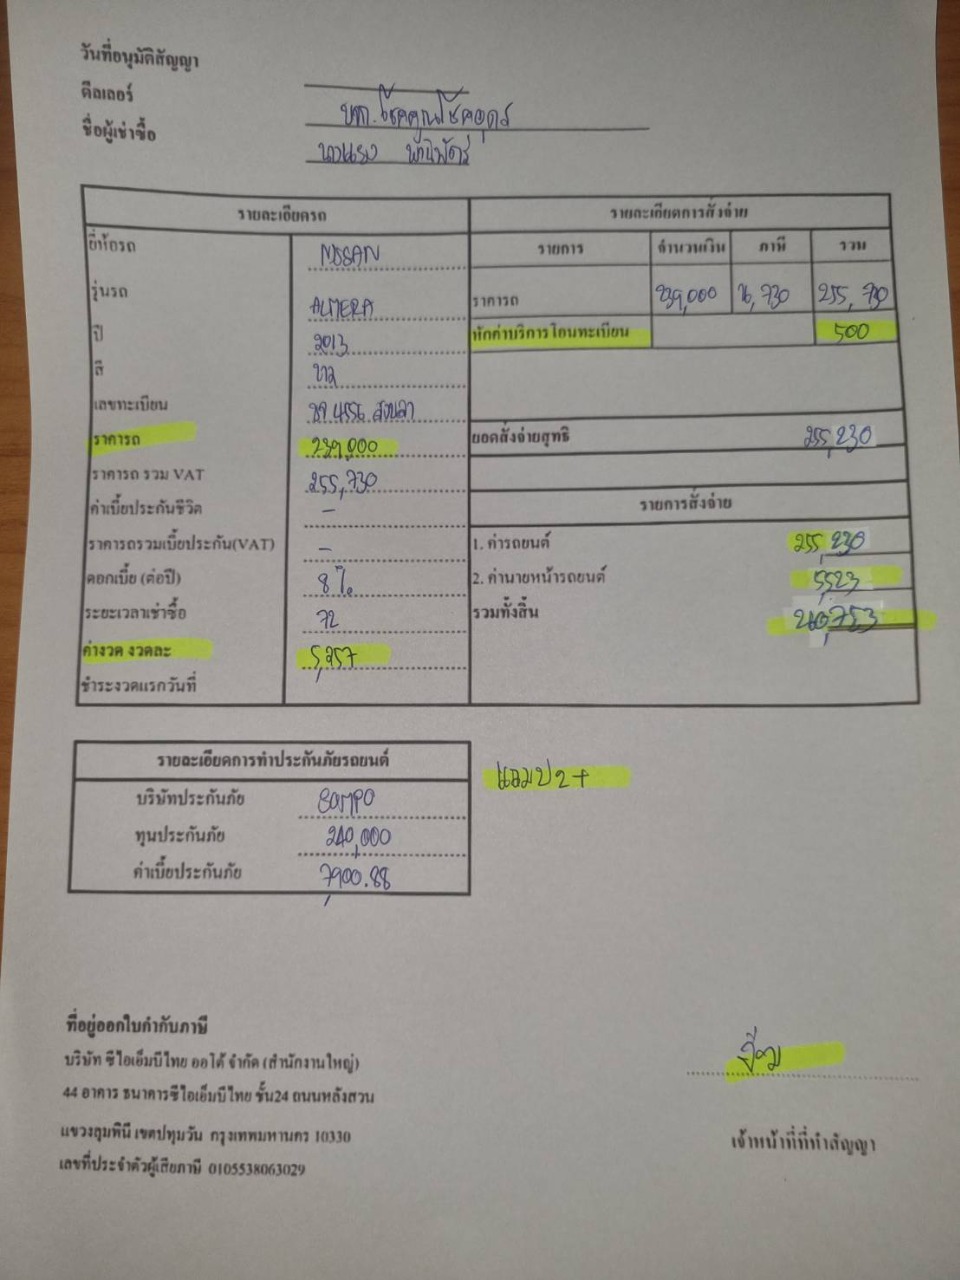 วันที่อนุมัติสัญญา
ดีลเลอร์ บจก.โชคคูณโชคอุดร
ชื่อผู้เช่าซื้อ
รายละเอียดรถ
ยี่ห้อรถ NISSAN
รุ่นรถ ALMERA
ปี 2013
สี ขาว
เลขทะเบียน 4556 สงขลา
ราคารถ 239,000
ราคารถ รวม VAT 255,730
ค่าเบี้ยประกันชีวิต -
ราคารถรวมเบี้ยประกัน(VAT) -
ดอกเบี้ย (ต่อปี) 8%
ระยะเวลาเช่าซื้อ 72
ค่างวด งวดละ 5,257
ชำระงวดแรกวันที่
รายละเอียดการสั่งจ่าย
รายการ จำนวนเงิน ภาษี รวม
ราคารถ 239,000 16,730 255,730
หักค่าบริการโอนทะเบียน 500
ยอดสั่งจ่ายสุทธิ 255,230
รายการสั่งจ่าย
1. ค่ารถยนต์ 255,230
2. ค่านายหน้ารถยนต์ 5,523
รวมทั้งสิ้น 260,753
รายละเอียดการทำประกันภัยรถยนต์
บริษัทประกันภัย SOMPO
ทุนประกันภัย 240,000
ค่าเบี้ยประกันภัย 7,900.88
แคมป 2+
ที่อยู่ออกใบกำกับภาษี
บริษัท ซีไอเอ็มบีไทย ออโต้ จำกัด (สำนักงานใหญ่)
44 อาคาร ธนาคารซีไอเอ็มบีไทย ชั้น24 ถนนหลังสวน
แขวงลุมพินี เขตปทุมวัน กรุงเทพมหานคร 10330
เลขที่ประจำตัวผู้เสียภาษี 0105538063029
เจ้าหน้าที่ที่ทำสัญญา